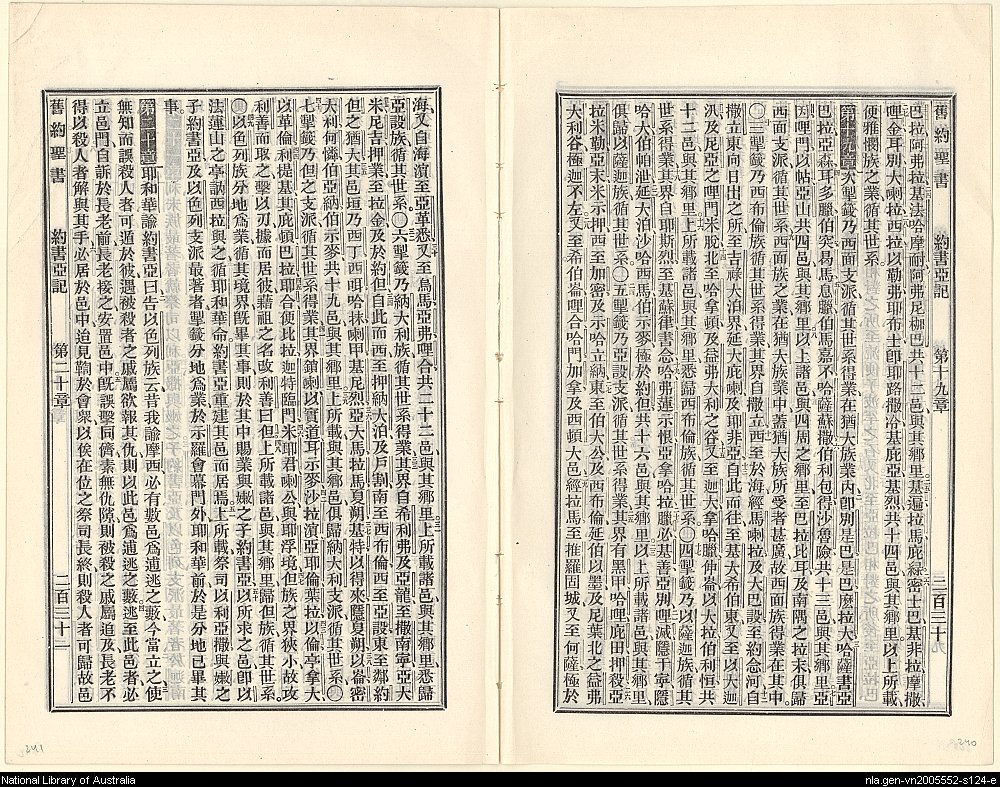 舊約聖書 約書亞記 第十九章
巴拉阿弗拉基法哈摩耐阿弗尼枷巴共十二邑與其鄉里基遍拉馬庇綠密士巴基非拉摩撒
哩金耳別大喇拉西拉以勒弗耶布士卽耶路撒冷基庇亞基烈共十四邑與其鄉里以上所載
便雅憫族之業循其世系
第十九章二掣籤乃西面支派循其世系得業在猶大族業內卽別是巴是巴麽拉大哈薩書亞
巴拉亞森耳多臘伯突易馬息臘伯馬嘉不哈薩蘇撒伯利包得沙魯險共十三邑與其鄉里亞
因哩門以帖亞山共四邑與其鄉里以上諸邑與四周之鄉里至巴拉比耳及南隅之拉末俱歸
西面支派循其世系西面族之業在猶大族業中蓋猶大族所受者甚廣故西面族得業在其中
三掣籤乃西布倫族循其世系得業其界自撒立西至於海經馬喇拉及大巴設至約念河自
撒立東向日出之所至吉祿大泊界延大庇喇及耶非亞自此而往至基大希伯東又至以大迦
汎及尼亞之哩門米脫北至哈拿頓及益弗大利之谷又至迦大拿哈臘伸崙以大拉伯利恒共
十二邑與其鄉里上所載諸邑與其鄉里悉歸西布倫族循其世系四掣籤乃以薩迦族循其
世系得業其界自耶斯烈至基蘇律書念哈弗蓮示恨亞拿哈拉臘必基善亞別哩滅隱干寧隱
哈大伯帕泄延大泊沙哈西馬伯示麥極於約但共十六邑與其鄉里以上所載諸邑與其鄉里
俱歸以薩迦族循其世系五掣籤乃亞設支派循其世系得業其界有黑甲哈哩庇田押殺亞
拉米勒亞末米示押西至加密及示哈立納東至伯大公及西布倫延伯以墨及尼葉北之益弗
大利谷極迦不左又至希伯崙哩合哈門加拿及西頓大邑經拉馬至推羅固城又至何薩極於
海又自海濱至亞革悉又至烏馬亞弗哩合共二十二邑與其鄉里上所載諸邑與其鄉里悉歸
亞設族循其世系六掣籤乃納大利族循其世系得業其界自希利弗及亞龍至撒南寧亞大
米尼吉押業至拉金及於約但自此而西至押納大泊及戶割南至西布倫西至亞設東至鄰約
但之猶大其邑垣乃西丁西㖿哈抹喇甲基尼烈亞大馬拉馬夏朔基特以得來隱夏朔以崙密
大利何憐伯亞納伯示麥共十九邑與其鄉里上所載與其鄉邑俱歸納大利支派循其世系
七掣籤乃但之支派循其世系得業其界鎖喇以實道耳示麥沙拉濱亞耶倫葉拉以倫亭拿大
以革倫利提基其庇頓巴拉耶合便比拉迦特臨門米耶君喇公與耶浮境但族之界狹小故攻
利善而取之擊以刃據而居彼藉祖之名改利善曰但上所載諸邑與其鄉里歸但族循其世系
以色列族分地爲業循其境界旣畢其事則於其中賜業與嫩之子約書亞以所求之邑卽以
法蓮山之亭訥西拉與之循耶和華命約書亞重建其邑而居焉上所載祭司以利亞撒與嫩之
子約書亞及以色列支派最著者掣籤分地爲業於示羅會幕門外耶和華前於是分地已畢其
事
第二十章耶和華諭約書亞曰告以色列族云昔我諭摩西必有數邑爲逋逃之藪今當立之使
無知而誤殺人者可遁於彼遇被殺者之戚屬欲報其仇則以此邑爲逋逃之藪逃至此邑者必
立邑門自訴於長老前長老接之安置邑中旣誤擊同儕素無仇隙則被殺之戚屬追及長老不
得以殺人者解與其手必居於邑中迨見鞫於會衆以俟在位之祭司長終則殺人者可歸故邑
舊約聖書 約書亞記 第二十章
241
240
National Library of Australia
nla.gen-vn2005552-s124-e